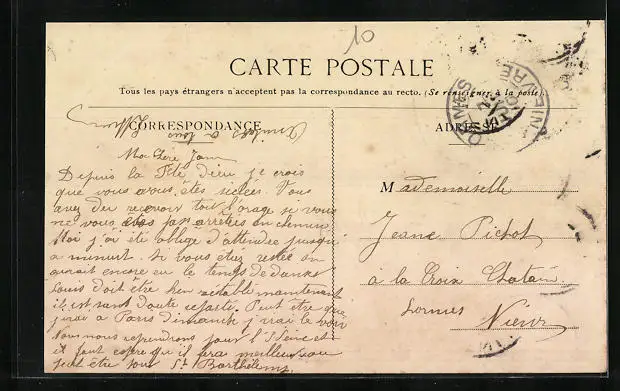 10
CARTE POSTALE
Tous les pays étrangers n'acceptent pas la correspondance au recto. (Se renseigner à la poste).
CORRESPONDANCE
ADRESSE
Amitiés à tous
Ma Chère Jane
Depuis la Fête Dieu je crois
que vous êtes sèches. Vous
avez du recevoir tout l'orage si vous
ne vous êtes pas arretés en chemin
Moi j'ai été obligé d'attendre jusqu'
a minuit. Si vous étiez restée on
aurait encore eu le temps de danser
Louis doit être bien rétabli maintenant
il est sans doute reparti. Peut être que
j'irai a Paris dimanche j'irai le voir
Nous nous reprendrons pour l'
et il faut esperer qu'il fera meilleur
peut être pour St Barthélemy.
Mademoiselle
Jeane Pichot
à la Croix Chatain
Lormes
Nièvre